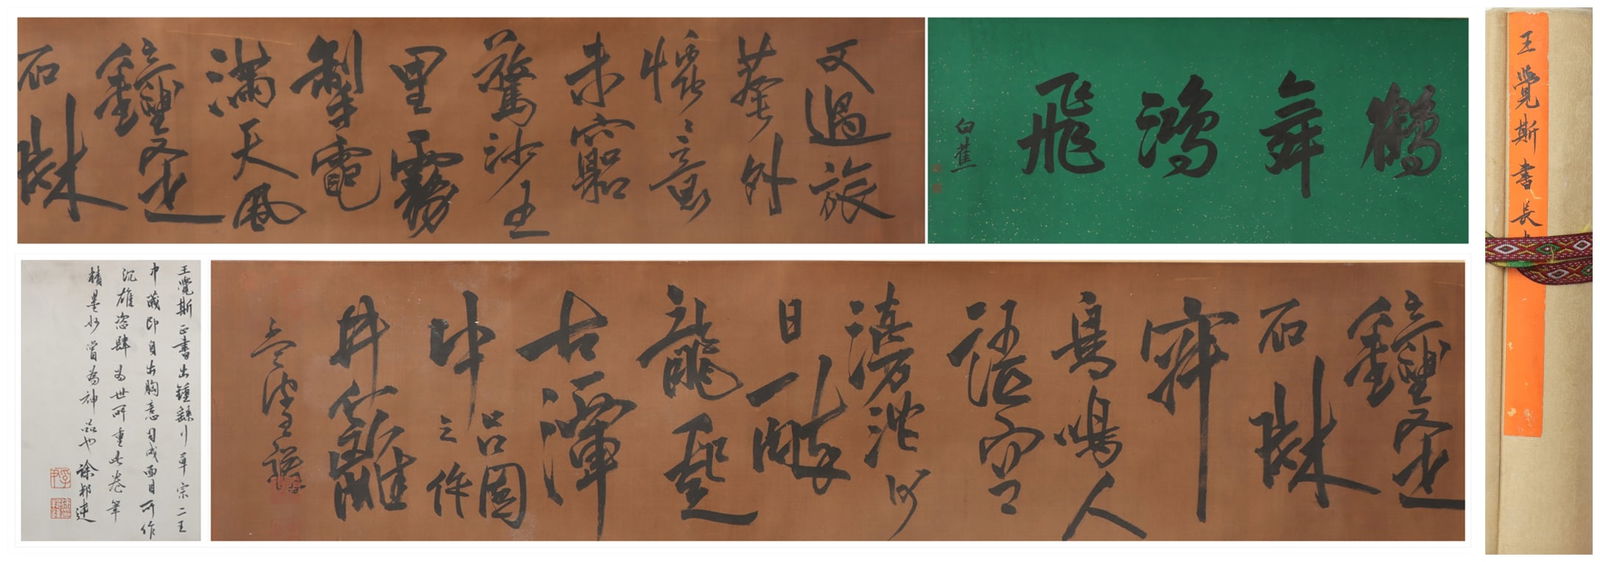 鶴舞鴻飛
白蕉
又過旅
菴外
懷意
未窮
驚沙五
里霧
掣電
滿天風
鐘
石
鐘
石
鳥鳴人
語空
澹沱何
日
龍起
古潭
中
呂園
之作
井籬
王鐸
王覺斯正書出鍾繇行草宗二王
中歲即自出胸意自成面目所作
沉雄恣肆為世所重此卷筆
精墨妙當為神品也 徐邦達
王覺斯書長